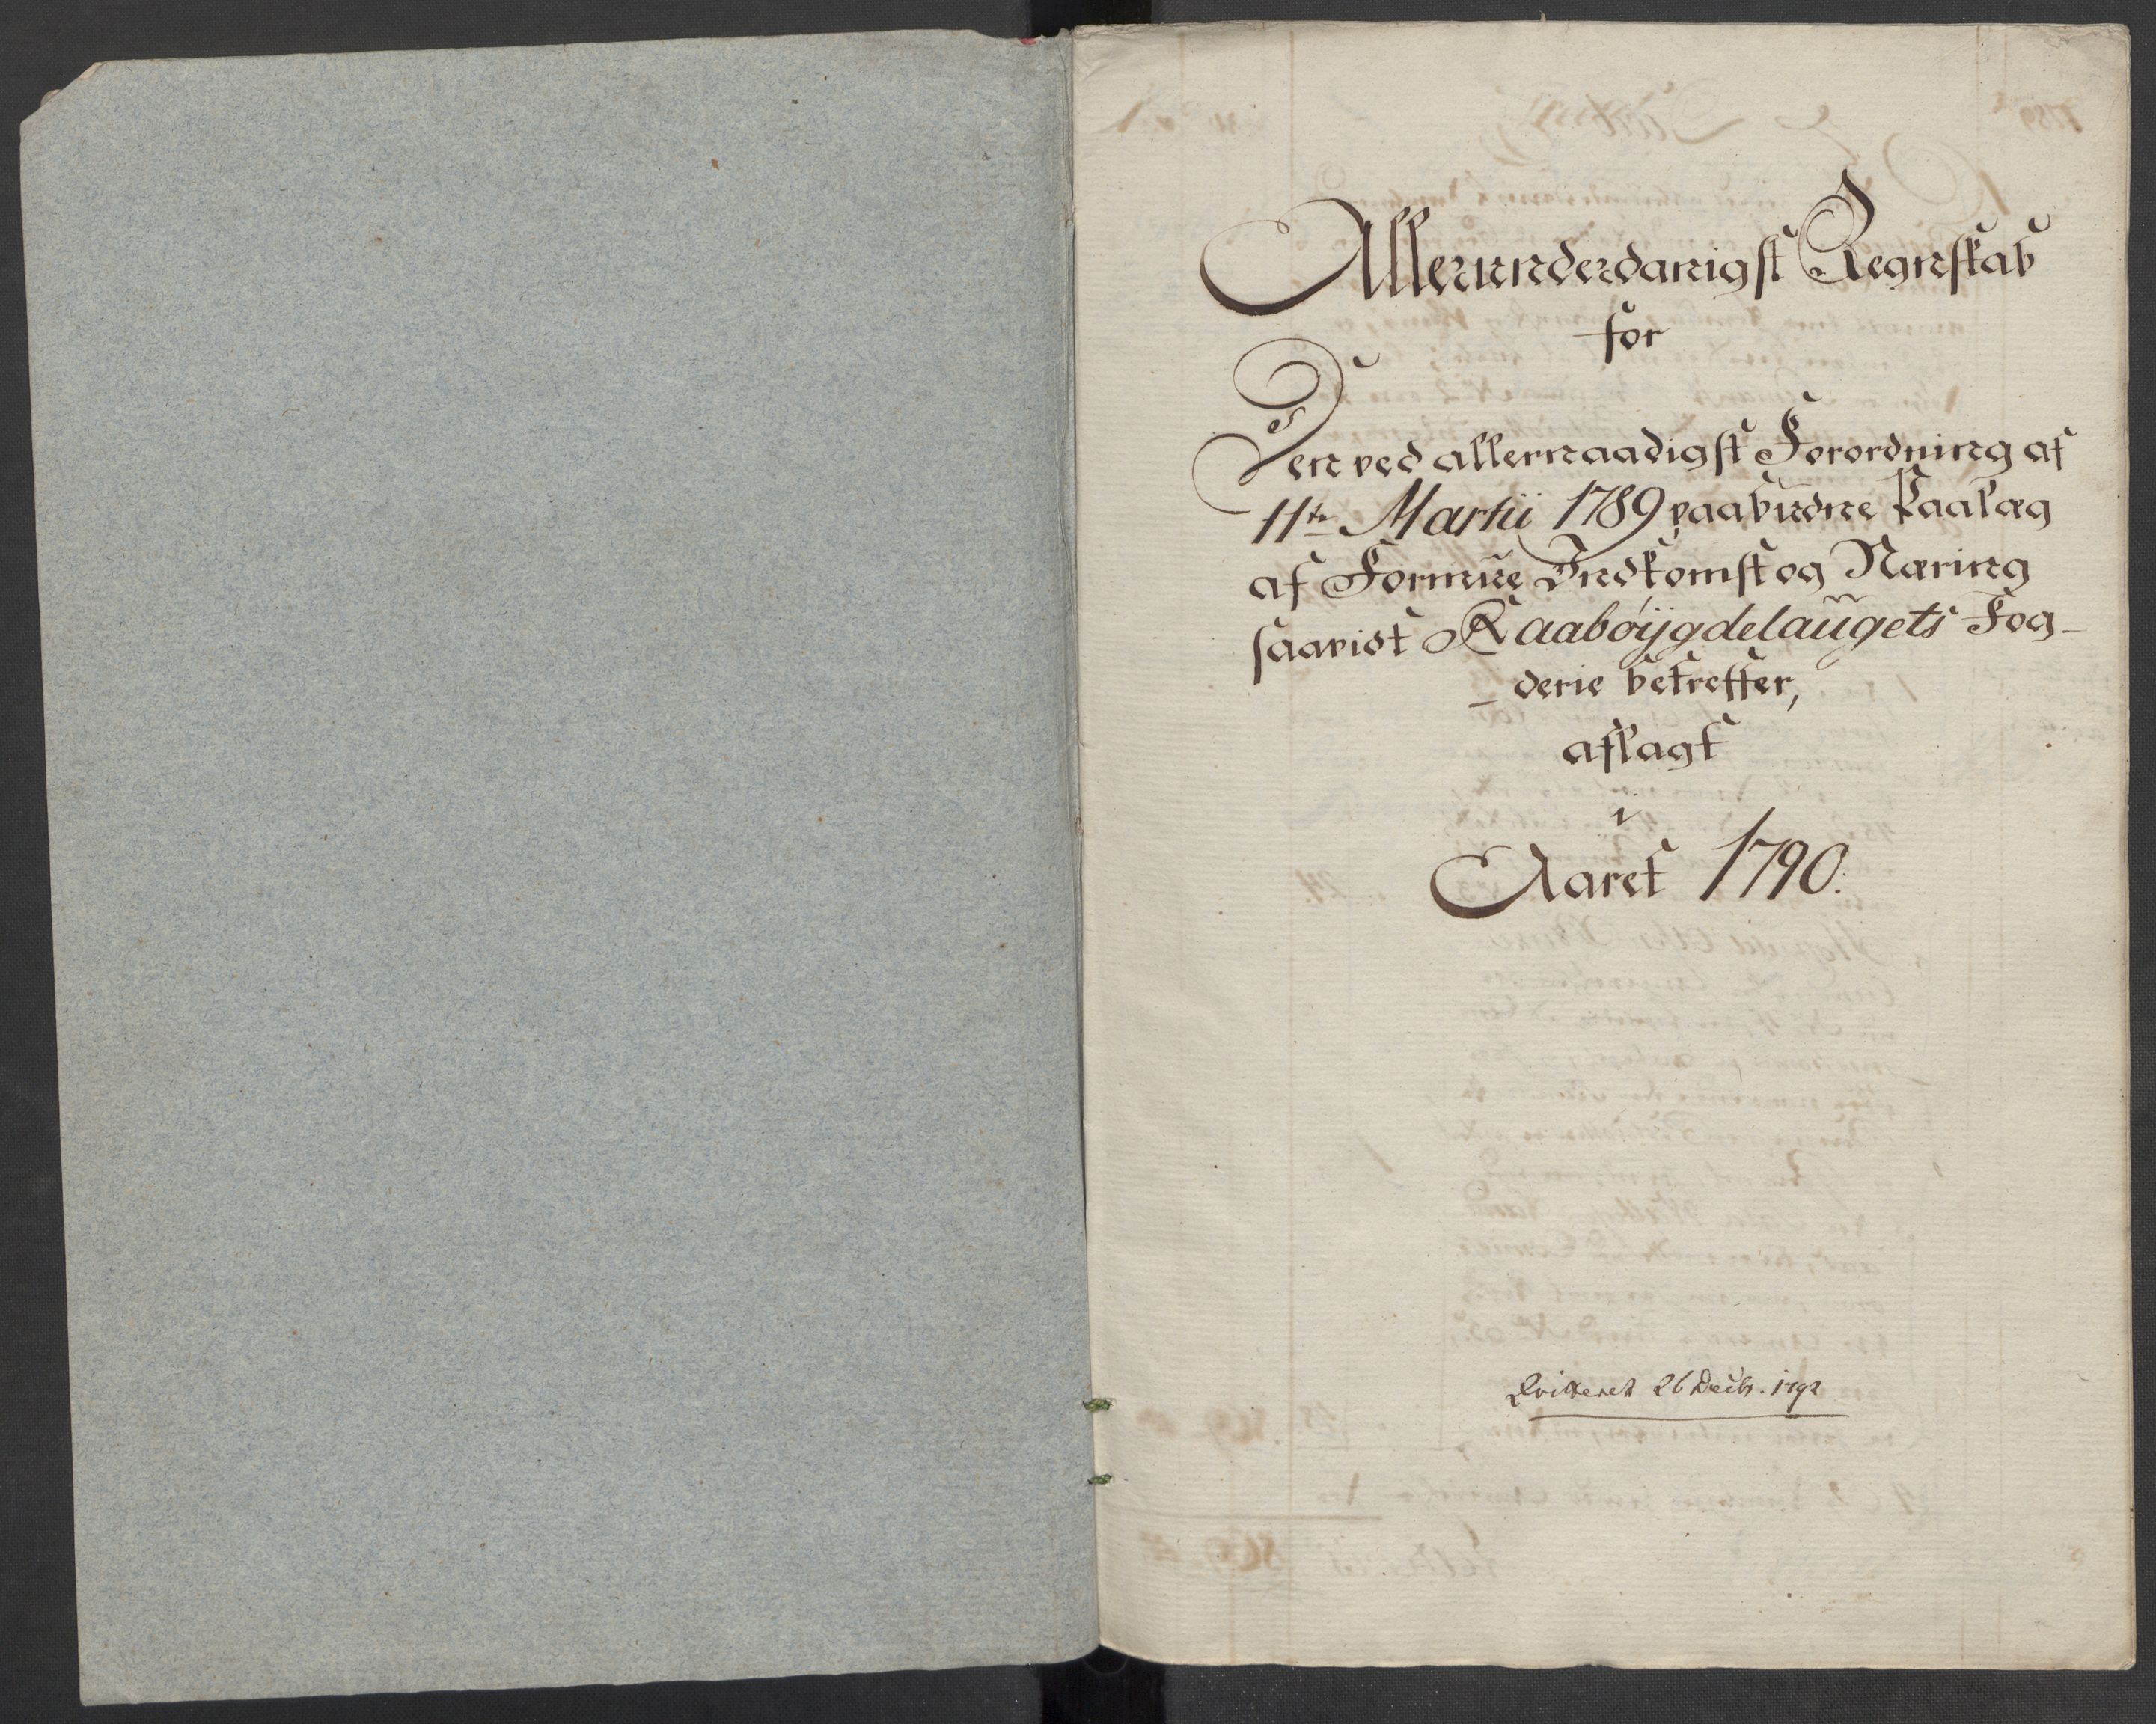 Allerunderdanigst Regnskab
for
Den ved allernaadigst Forordning af
11te Martii 1789 paabudne Paalæg
af Formue Indkomst og Næring
saavidt Raabøÿgdelaugets Fog-
derie betreffer,
aflagt
i
Aaret 1790.
Qvitteret 26 Decbr. 1792